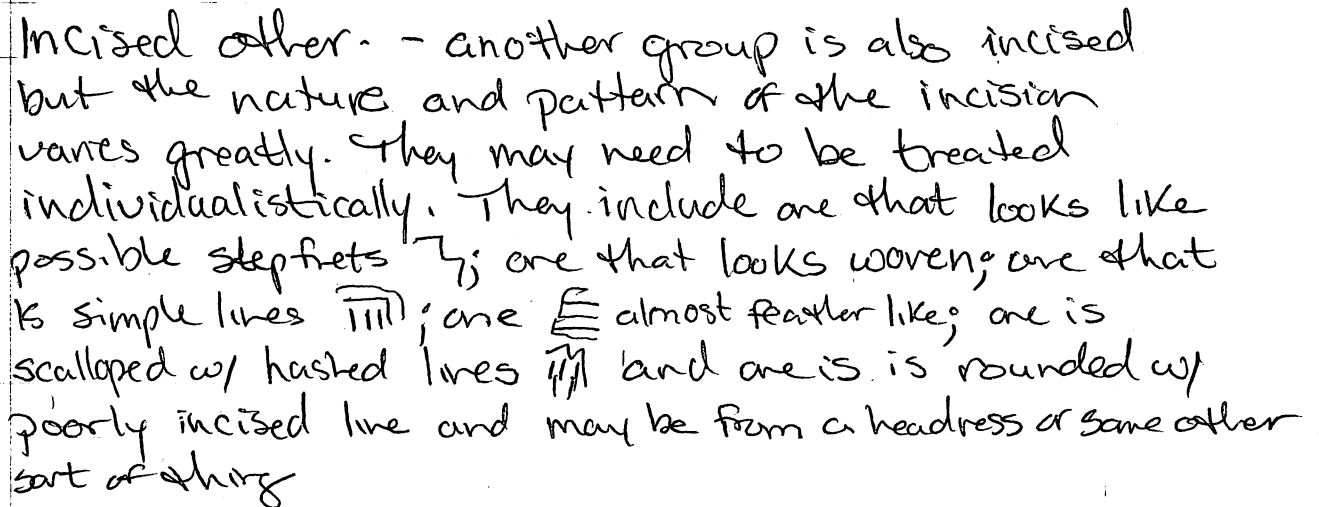 Incised other. - another group is also incised
but the nature and pattarn of the incision
varies greatly. They may need to be treated
individualistically. They include one that looks like
possible stepfrets ; one that looks woven; one that
is simple lines ; one almost feather like; one is
scalloped w/ hashed lines and one is is rounded w/
poorly incised line and may be from a headress or some other
sort of thing